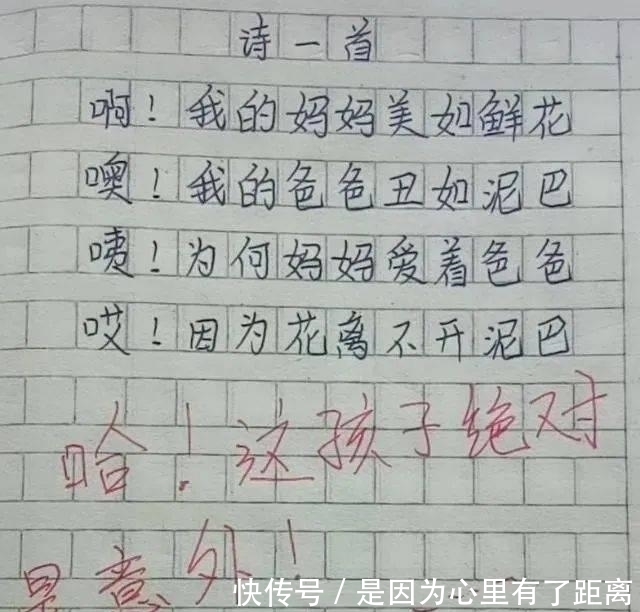 诗一首
啊!我的妈妈美如鲜花
噢!我的色色丑如泥巴
咦!为何妈妈爱着色色
哎!因为花离不开泥巴
哈!这孩子绝对
是意外!
快传号/是因为心里有了距离